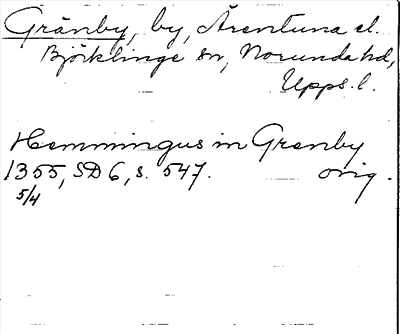 Gränby, by, Ärentuna el.
Björklinge sn, Norunda hd,
Upps. l.
Hemmingus in Grenby
1355, SD 6, s. 547. orig.
5/4